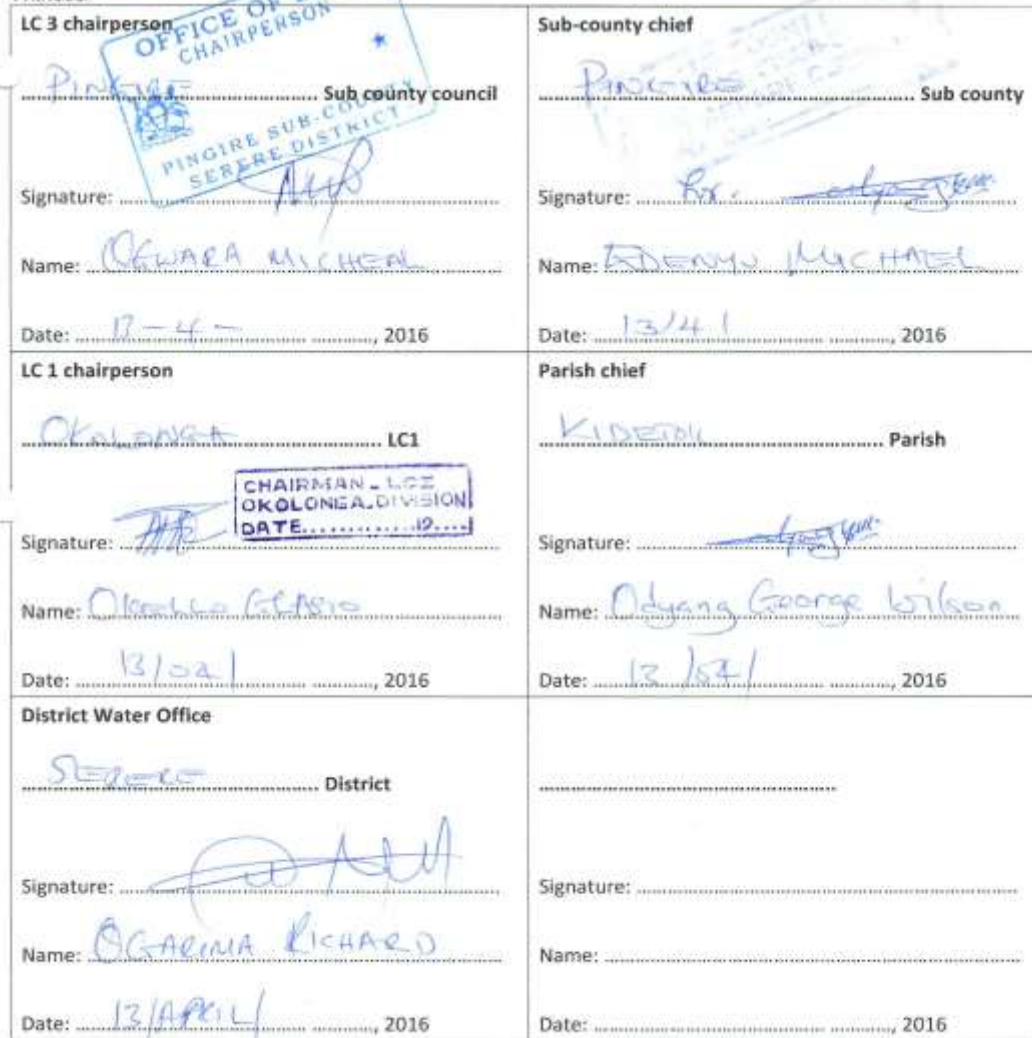 LC 3 chairperson
OFFICE OF
CHAIRPERSON
PINGIRE Sub county council
PINGIRE SUB-COUNTY
SERERE DISTRICT
Signature:
Name: OGWARA MICHEAL
Date: 13-4- , 2016
Sub-county chief
PINGIRE Sub county
Signature:
Name: EDENYU MICHAEL
Date: 13/4/ , 2016
LC 1 chairperson
OKOLONGA LC1
CHAIRMAN - LCI
OKOLONGA DIVISION
DATE............19....
Signature:
Name: Okello
Date: 13/04/ , 2016
Parish chief
KIDETOK Parish
Signature:
Name: Odyang George Wilson
Date: 13/04/ , 2016
District Water Office
SERERE District
Signature:
Name: OGARIMA RICHARD
Date: 13/APRIL/ , 2016
Signature:
Name:
Date: , 2016